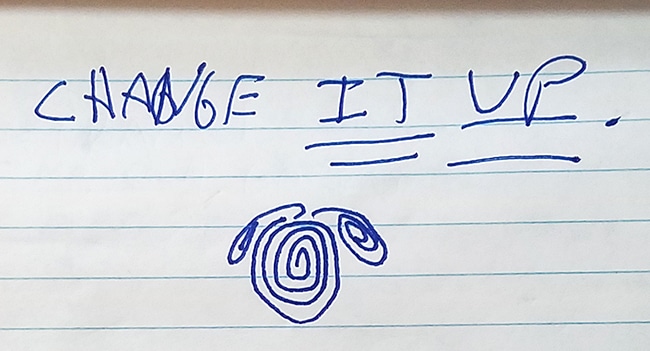 CHANGE IT UP.